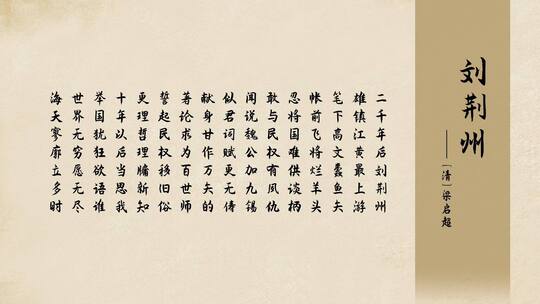 刘荆州
——[清]梁启超
二千年后刘荆州
雄镇江黄最上游
笔下高文蠹鱼矢
帐前飞将烂羊头
忍将国难供谈柄
敢与民权有夙仇
闻说魏公加九锡
似君词赋更无俦
献身甘作万矢的
著论求为百世师
誓起民权移旧俗
更理哲理牖新知
十年以后当思我
举国犹狂欲语谁
世界无穷愿无尽
海天寥廓立多时